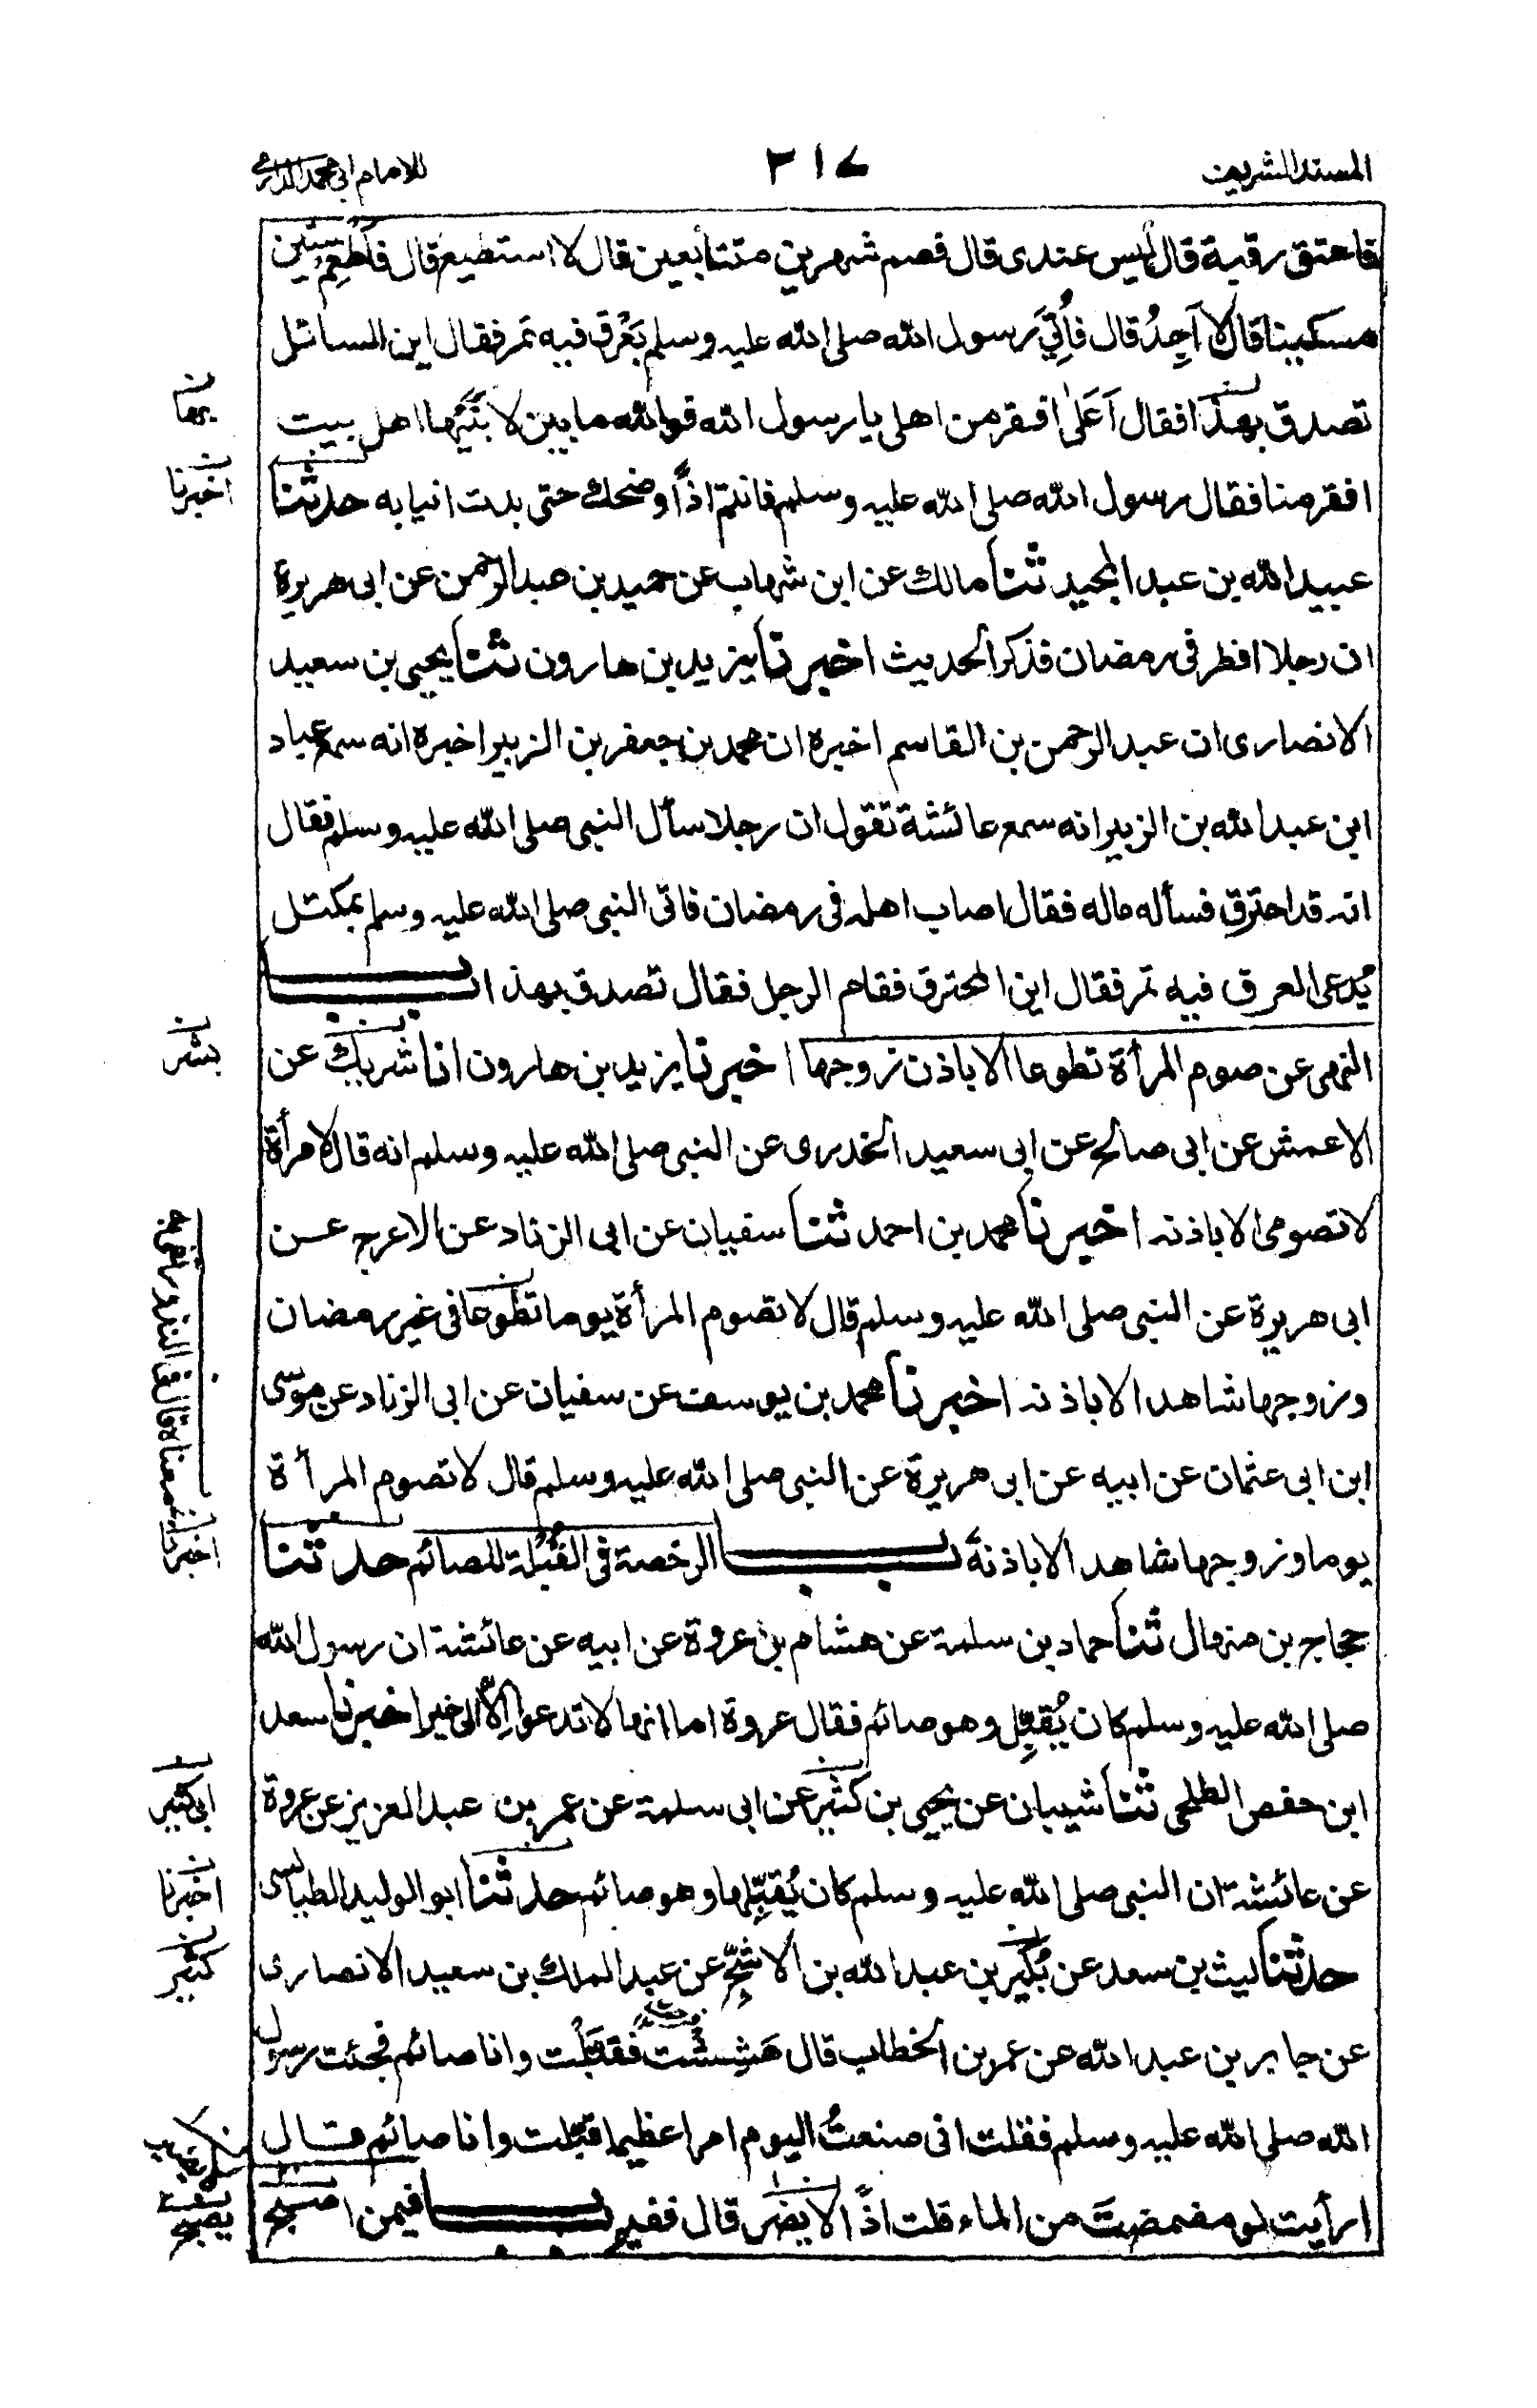 المسند الشريف
٢١٧
للامام ابى محمد الدارمى
فاعتق رقبة قال ليس عندى قال فصم شهرين متتابعين قال لا استطيع قال فأَطْعِمْ ستين
مسكينا قال لا اَجِدُ قال فأُتِيَ رسول الله صلى الله عليه وسلم بَعَرَق فيه تمر فقال اين السائل
تصدق بهذا فقال اَعَلىٰ افقر من اهلى يا رسول الله فوالله ما بين لابَتَيْها اهل بيت
افقر منا فقال رسول الله صلى الله عليه وسلم فانتم اذًا وضحك حتى بدت انيابه حدثنا
عبيد الله بن عبد المجيد ثنا مالك عن ابن شهاب عن حميد بن عبد الرحمن عن ابى هريرة
ان رجلا افطر فى رمضان فذكر الحديث اخبرنا يزيد بن هارون ثنا يحيى بن سعيد
الانصارى ان عبد الرحمن بن القاسم اخبره ان محمد بن جعفر بن الزبير اخبره انه سمع عباد
ابن عبد الله بن الزبير انه سمع عائشة تقول ان رجلا سأل النبى صلى الله عليه وسلم فقال
انه قد احترق فسأله ماله فقال اصاب اهله فى رمضان فاتى النبى صلى الله عليه وسلم بمكتل
يُدعى العرق فيه تمر فقال اين المحترق فقام الرجل فقال تصدق بهذا باب
النهى عن صوم المرأة تطوعا الا باذن زوجها اخبرنا يزيد بن هارون انا شريك عن
الاعمش عن ابى صالح عن ابى سعيد الخدرى عن النبى صلى الله عليه وسلم انه قال لامرأة
لا تصومى الا باذنه اخبرنا محمد بن احمد ثنا سفيان عن ابى الزناد عن الاعرج عن
ابى هريرة عن النبى صلى الله عليه وسلم قال لا تصوم المرأة يوما تطوعا فى غير رمضان
وزوجها شاهد الا باذنه اخبرنا محمد بن يوسف عن سفيان عن ابى الزناد عن موسى
ابن ابى عثمان عن ابيه عن ابى هريرة عن النبى صلى الله عليه وسلم قال لا تصوم المرأة
يوما وزوجها شاهد الا باذنه باب الرخصة فى القُبْلة للصائم حدثنا
حجاج بن منهال ثنا حماد بن سلمة عن هشام بن عروة عن ابيه عن عائشة ان رسول الله
صلى الله عليه وسلم كان يُقبِّل وهو صائم فقال عروة اما انها لا تدعو اِلّا الى خير اخبرنا سعد
ابن حفص الطلحى ثنا شيبان عن يحيى بن كثير عن ابى سلمة عن عمر بن عبد العزيز عن عروة
عن عائشة ان النبى صلى الله عليه وسلم كان يُقبِّلها وهو صائم حدثنا ابو الوليد الطيالسى
حدثنا ليث بن سعد عن بُكَير بن عبد الله بن الاشجّ عن عبد الملك بن سعيد الانصارى
عن جابر بن عبد الله عن عمر بن الخطاب قال هَشِشْت فقبّلْت وانا صائم فجئت رسول
الله صلى الله عليه وسلم فقلت انى صنعتُ اليوم امرا عظيما قبّلت وانا صائم قال
ارأيت لو مضمضتَ من الماء قلت اذًا لا يضر قال ففيم باب فيمن اصبح
بها
اخبرنا
بشر
معناه قال فى النذور تفى به
اخبرنا
ابى كثير
اخبرنا
كثير
يصبح